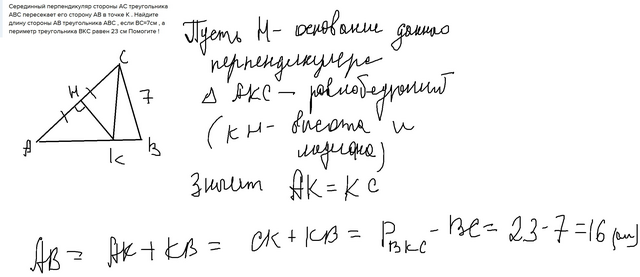 Серединный перпендикуляр стороны AC треугольника
ABC пересекает его сторону AB в точке K . Найдите
длину стороны AB треугольника ABC , если BC=7см , а
периметр треугольника BKC равен 23 см Помогите !
Пусть H - основание данного
перпендикуляра
Δ AKC - равнобедренный
(KH - высота и
медиана)
Значит AK = KC
C
H
7
A
K
B
AB = AK + KB = CK + KB = P_BKC - BC = 23 - 7 = 16 (см)